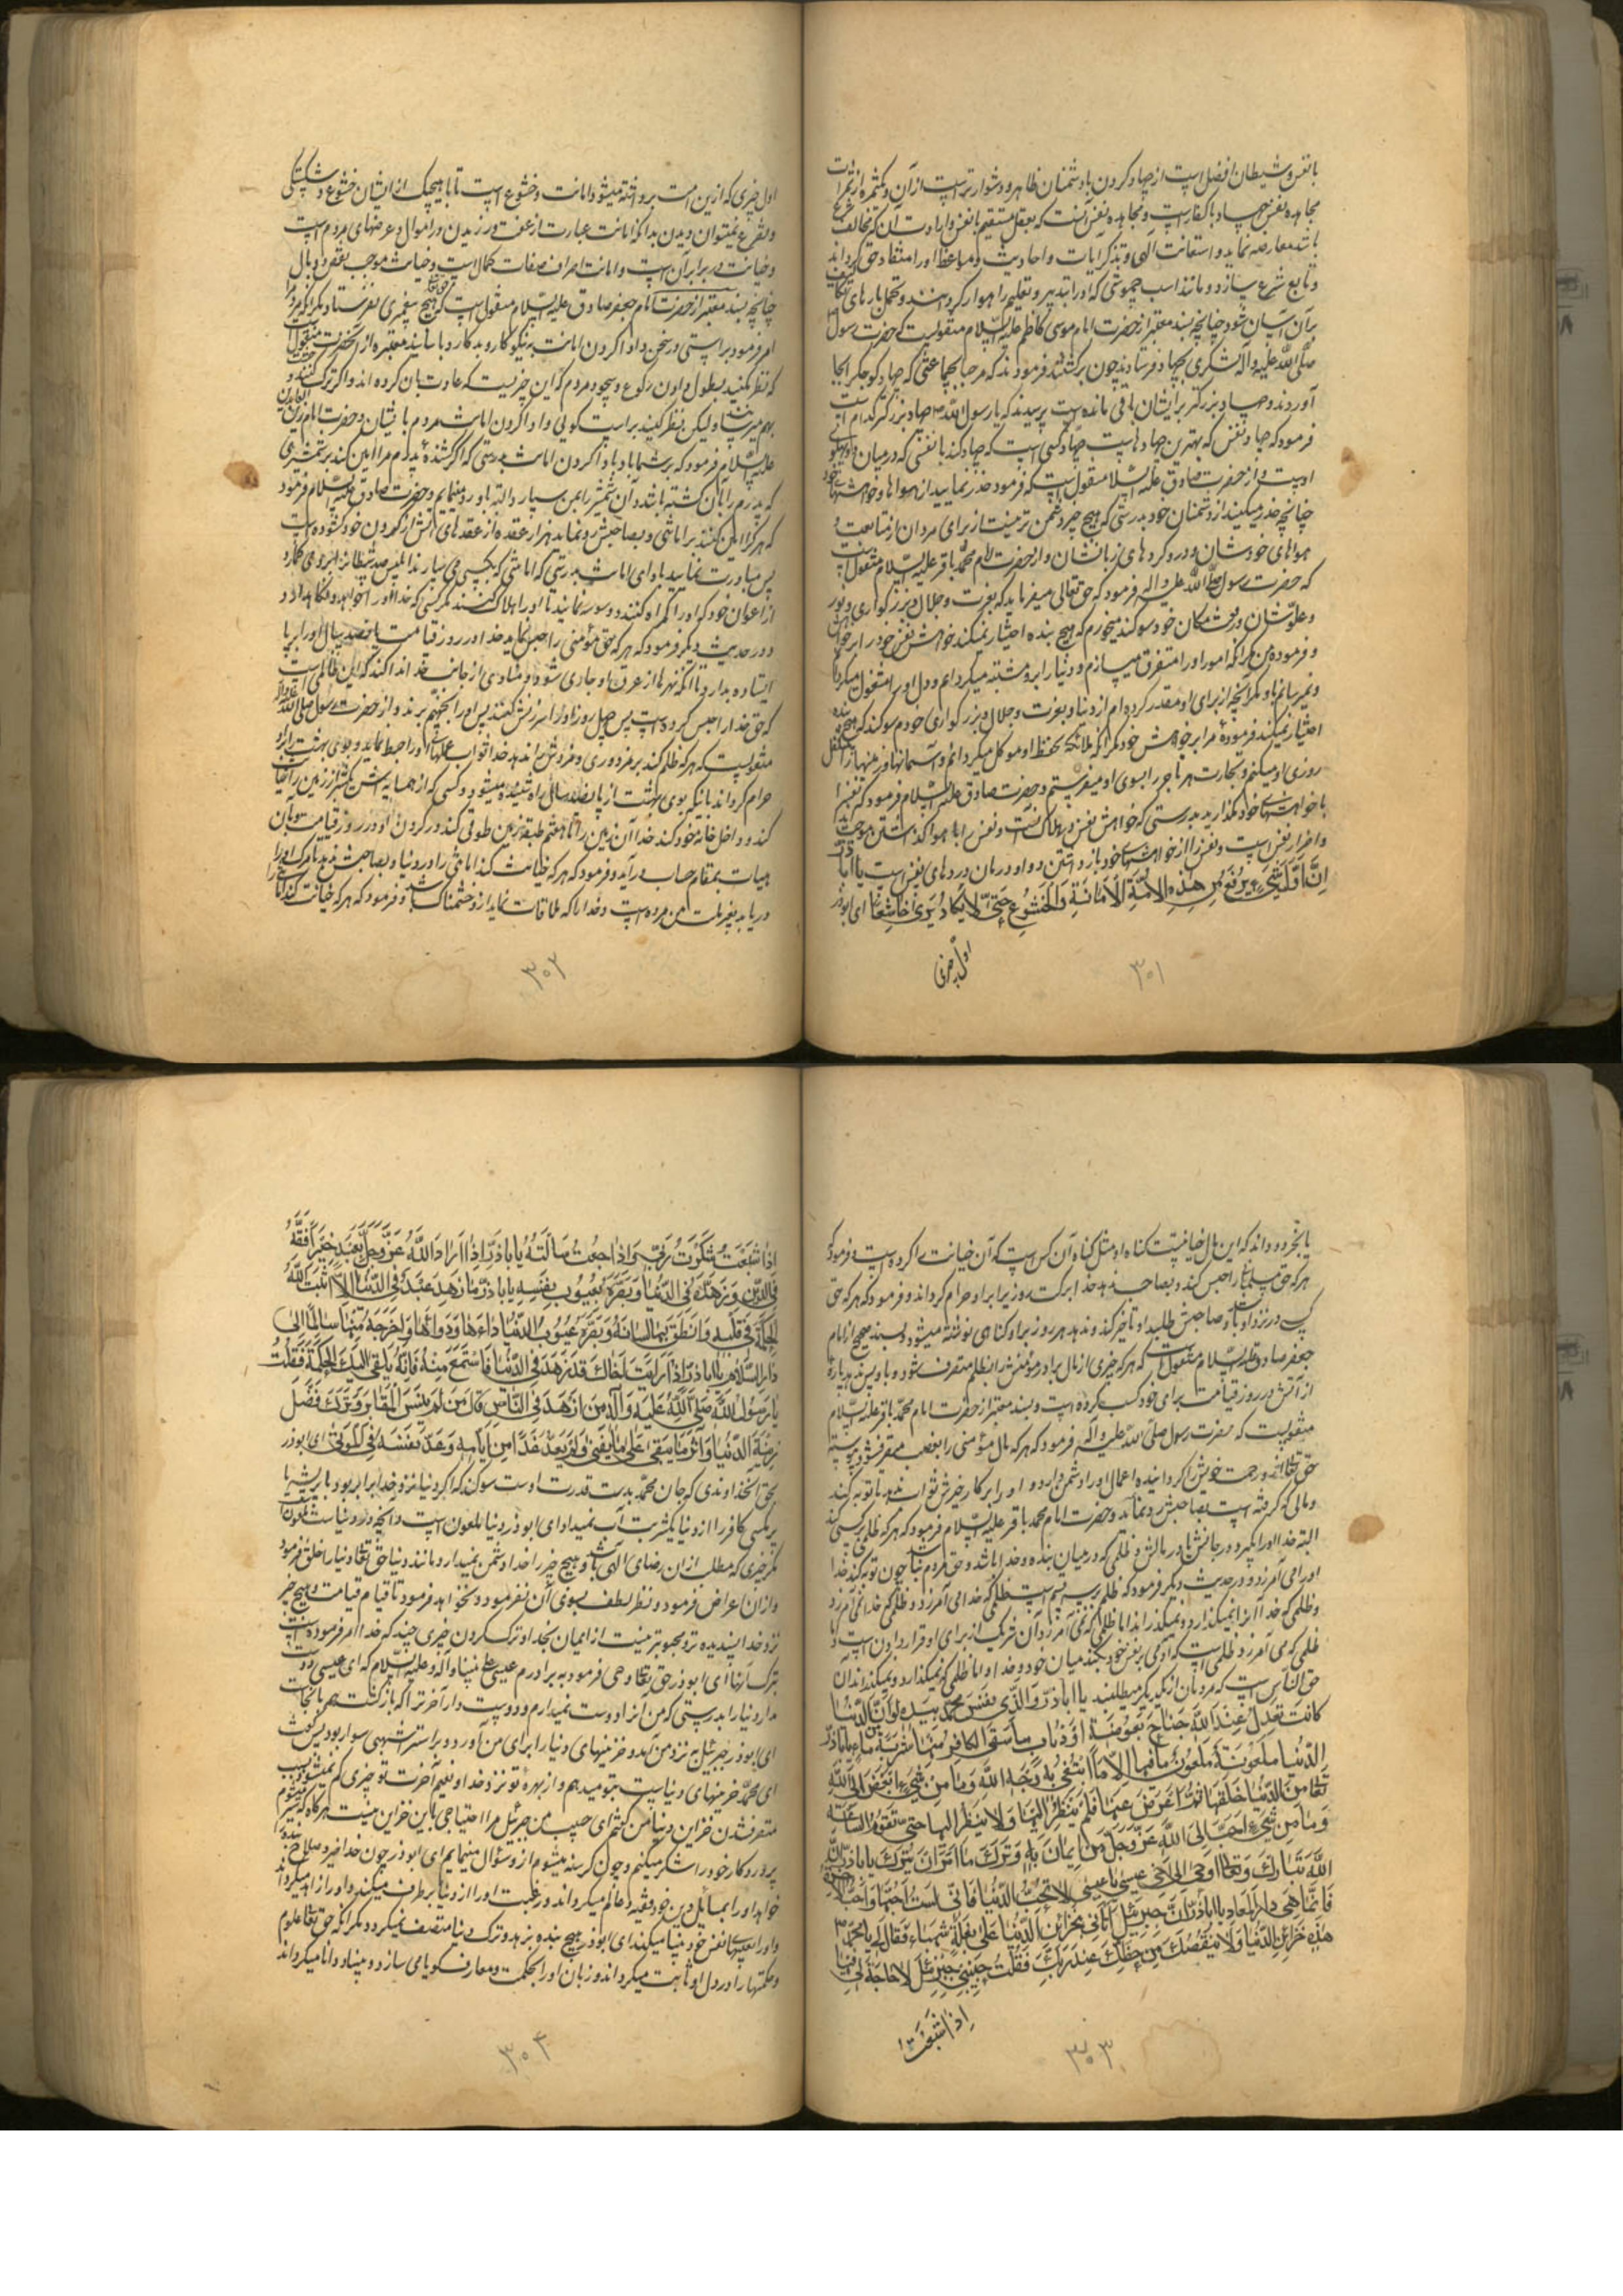 با نفس و شیطان افضل است از جهاد کردن با دشمنان ظاهر و دشوارتر است از آن و مثمره از ثمرات
مجاهده نفس جهاد با کفار است و مجاهده نفس آنست که بعقل مستقیم با نفس و ارادت آن که مخالف شرع
باشد معارضه نماید و استعانت الهی و بتذکر آیات و احادیث و مواعظ او را منقاد حق گرداند
و تابع شرع سازد و مانند اسب چموشی که او را بتدبیر و تعلیم راهوار کردهند و تحمل بارهای تکالیف
بر آن آسان شود چنانچه بسند معتبر از حضرت امام موسی کاظم علیه السلام منقولست که حضرت رسول
صلی الله علیه و آله لشکری بجهاد فرستادند چون برگشتند فرمودند که مرحبا بجماعتی که جهاد کوچکتر بجا
آوردند و جهاد بزرگتر بر ایشان باقی مانده است پرسیدند که یا رسول الله جهاد بزرگتر کدام است
فرمود که جهاد نفس که بهترین جهادهاست جهاد کسی است که جهاد کند با نفسی که در میان دو پهلوی
اوست و از حضرت صادق علیه السلام منقول است که فرمود حذر نمایید از هواها و خواهشهای خود
چنانچه حذر میکنید از دشمنان خود بدرستی که هیچ چیز دشمن تر نیست از برای مردان از متابعت
هواهای خودشان و درو کردهای زبانشان و از حضرت امام محمد باقر علیه السلام منقول است
که حضرت رسول صلی الله علیه و اله فرمود که حق تعالی میفرماید که بعزت و جلال و بزرگواری و نور
و علو شان و رفعت مکان خود سوگند میخورم که هیچ بنده اختیار نمیکند خواهش نفس خود را بر خواهش
و فرموده من مگر آنکه امور او را متفرق میسازم و دنیا را بر او مشتبه میگردانم و دل او را مشغول میگردانم
و نمیرسانم باو مگر آنچه از برای او مقدر کرده ام از دنیا و بعزت و جلال و بزرگواری خودم سوگند که هیچ بنده
اختیار نمیکند فرموده مرا بر خواهش خود مگر آنکه ملائکه بحفظ او موکل میگردانم و آسمانها و زمینها را متکفل
روزی او میکنم و تجارت هر تاجر را بسوی او میفرستم و حضرت صادق علیه السلام فرمود که نفس را
با خواهشهای خود مگذارید بدرستی که خواهش نفس در هلاک آنست و نفس را با هوا گذاشتن موجب
و اضرار نفس است و نفس را از خواهشهای خود باز داشتن دوا و درمان دردهای نفس است یا اباذر
اِنَّ اَوَّلَ شَیْءٍ یُرْفَعُ مِنْ هٰذِهِ الْاُمَّةِ الْاَمَانَةُ وَالْخُشُوعُ حَتّٰی لَا یَکَادُ یُرٰی خَاشِعًا ای ابوذر
اول چیزی
۳۰۱
اول چیزی که ازین امت برداشته میشود امانت و خشوع است تا با هیچیک از ایشان خشوع و شکستگی
و تضرع نمیتوان دیدن بدانکه امانت عبارت از عفت ورزیدن در اموال و عرضهای مردم است
و خیانت در برابر آن است و امانت اشرف صفات کمال است و خیانت موجب نقص و وبال
چنانچه بسند معتبر از حضرت امام جعفر صادق علیه السلام منقول است که حق تعالی هیچ پیغمبری نفرستاد مگر آنکه مردم را
امر فرمود براستی در سخن و ادا کردن امانت به نیکوکار و بدکار و باسانید معتبره از آنحضرت منقول است
که نظر مکنید بطول دادن رکوع و سجود مردم که این چیزیست که عادت بآن کرده اند و اگر ترک کنند
بهم میرسد و لیکن نظر کنید براست گویی و ادا کردن امانت مردم با ایشان و حضرت امام زین العابدین
علیه السلام فرمود که بر شما باد باداء کردن امانت بدرستی که اگر کشنده پدرم مرا امین کند بر شمشیری
که پدرم را بآن کشته باشد و آن شمشیر را بمن بسپارد البته باو رد مینمایم و حضرت صادق علیه السلام فرمود
که هر که را امین کنند بر امانتی و بصاحبش رد نماید هزار عقده از عقدهای آتش از گردن خود گشوده است
پس مبادرت نمایید بادای امانت بدرستی که امانتی که بکسی می سپارند ابلیس صد شیطان را بر او می گمارد
از اعوان خود که او را گمراه کنند و وسوسه نمایند تا او را هلاک کنند مگر کسی که خدا او را خواهد و نگاهدارد
و در حدیث دیگر فرمود که هر که حق مؤمنی را حبس نماید خدا در روز قیامت پانصد سال او را بر پا
ایستاده بدارد تا آنکه نهرها از عرق او جاری شود و منادی از جانب خدا ندا کند که این ظالمی است
که حق خدا را حبس کرده است پس چهل روز او را سرزنش کنند پس او را بجهنم برند و از حضرت رسول صلی الله علیه و اله
منقولست که هر که ظلم کند بر مزدوری و مزدوش را ندهد خدا ثواب عملهای او را حبط نماید و بوی بهشت بر او
حرام گرداند با آنکه بوی بهشت از پانصد ساله راه شنیده میشود و کسی که از همسایه اش یکشبر از زمین را خیانت
کند و داخل خانه خود کند خدا آن زمین را تا هفتم طبقه زمین طوقی کند در گردن او و در روز قیامت بآن
هیات بمقام حساب در آید و فرمود که هر که خیانت کند امانتی را در دنیا و بصاحبش ندهد تا مرگ او را
دریابد بغیر ملت من مرده است و خدا را که ملاقات نماید از او خشمناک باشد و فرمود که هر که خیانت کند امانت را
۳۰۲
یا بخرد و داند که این مال خیانتیست گناه او مثل گناه آن کس است که آن خیانت را کرده است و فرمود
هر که حق مسلمانی را حبس کند و بصاحبش ندهد خدا برکت روزی را بر او حرام گرداند و فرمود که هر که حق
کسی در نزد او باشد و صاحبش طلبد او تاخیر کند و ندهد هر روز بر او گناهی نوشته میشود و بسند صحیح از امام
جعفر صادق علیه السلام منقول است که هر که چیزی از مال برادر مؤمنش را بظلم متصرف شود و باو پس ندهد پاره
از آتش در روز قیامت برای خود کسب کرده است و بسند معتبر از حضرت امام محمد باقر علیه السلام
منقولست که حضرت رسول صلی الله علیه و آله فرمود که هر که مال مؤمنی را بغصب متصرف شود پیوسته
حق تعالی از او رحمت خویش را گردانیده اعمال او را دشمن دارد و او را بر کار خیرش ثواب ندهد تا توبه کند
و مالی که گرفته است بصاحبش رد نماید و حضرت امام محمد باقر علیه السلام فرمود که هر که ظلم بر کسی کند
البته خدا او را بگیرد در جانش یا در مالش و ظلمی که در میان بنده و خدا باشد و حق مردم نباشد چون توبه کند خدا
او را می آمرزد و در حدیث دیگر فرمود که ظلم بر سه قسم است ظلمی که خدا می آمرزد و ظلمی که خدا نمی آمرزد
و ظلمی که خدا آنرا نمیگذارد و نمیگذراند اما ظلمی که نمی آمرزد آن شریک از برای او قرار دادن است و
ظلمی که می آمرزد ظلمی است که آدمی بر نفس خود میکند میان خود و خدا و اما ظلمی که نمیگذارد و نمیگذراند آن
حق الناس است که مردمان از یکدیگر میطلبند یا اباذر وَالَّذِی نَفْسُ مُحَمَّدٍ بِیَدِهِ لَوْ اَنَّ الدُّنْیَا
کَانَتْ تَعْدِلُ عِنْدَ اللهِ جَنَاحَ بَعُوضَةٍ اَوْ ذُبَابٍ مَا سَقَی الْکَافِرَ مِنْهَا شَرْبَةً مِنْ مَاءٍ یَا اَبَاذَرٍّ
الدُّنْیَا مَلْعُونَةٌ مَلْعُونٌ مَا فِیهَا اِلَّا مَا ابْتُغِیَ بِهِ وَجْهُ اللهِ وَمَا مِنْ شَیْءٍ اَبْغَضَ اِلَی اللهِ
تَعَالٰی مِنَ الدُّنْیَا خَلَقَهَا ثُمَّ اَعْرَضَ عَنْهَا فَلَمْ یَنْظُرْ اِلَیْهَا وَلَا یَنْظُرُ اِلَیْهَا حَتّٰی تَقُومَ السَّاعَةُ
وَمَا مِنْ شَیْءٍ اَحَبَّ اِلَی اللهِ عَزَّ وَجَلَّ مِنْ اِیمَانٍ بِهِ وَتَرْکِ مَا اَمَرَ اَنْ یُتْرَکَ یَا اَبَاذَرٍّ اِنَّ
اللهَ تَبَارَکَ وَتَعَالٰی اَوْحٰی اِلٰی اَخِی عِیسٰی یَا عِیسٰی لَا تُحِبَّ الدُّنْیَا فَاِنِّی لَسْتُ اُحِبُّهَا وَاَحِبَّ الْاٰخِرَةَ
فَاِنَّمَا هِیَ دَارُ الْمَعَادِ یَا اَبَاذَرٍّ اِنَّ جَبْرَئِیلَ اَتَانِی بِخَزَائِنِ الدُّنْیَا عَلٰی بَغْلَةٍ شَهْبَاءَ فَقَالَ لِی یَا مُحَمَّدُ
هٰذِهِ خَزَائِنُ الدُّنْیَا وَلَا یَنْقُصُکَ مِنْ حَظِّکَ عِنْدَ رَبِّکَ فَقُلْتُ حَبِیبِی جَبْرَئِیلُ لَا حَاجَةَ لِی فِیهَا
اِذَا شَبِعْتُ
۳۰۳
اِذَا شَبِعْتُ شَکَرْتُ رَبِّی وَاِذَا جُعْتُ سَاَلْتُهُ یَا اَبَاذَرٍّ اِذَا اَرَادَ اللهُ عَزَّ وَجَلَّ بِعَبْدٍ خَیْرًا فَقَّهَهُ
فِی الدِّینِ وَزَهَّدَهُ فِی الدُّنْیَا وَبَصَّرَهُ بِعُیُوبِ نَفْسِهِ یَا اَبَاذَرٍّ مَا زَهِدَ عَبْدٌ فِی الدُّنْیَا اِلَّا اَثْبَتَ اللهُ
الْحِکْمَةَ فِی قَلْبِهِ وَاَنْطَقَ بِهَا لِسَانَهُ وَبَصَّرَهُ عُیُوبَ الدُّنْیَا وَدَاءَهَا وَدَوَاءَهَا وَاَخْرَجَهُ مِنْهَا سَالِمًا اِلٰی
دَارِ السَّلَامِ یَا اَبَاذَرٍّ اِذَا رَاَیْتَ اَخَاکَ قَدْ زَهِدَ فِی الدُّنْیَا فَاسْتَمِعْ مِنْهُ فَاِنَّهُ یُلْقِی اِلَیْکَ الْحِکْمَةَ فَقُلْتُ
یَا رَسُولَ اللهِ صَلَّی اللهُ عَلَیْهِ وَآلِهِ مَنْ اَزْهَدُ النَّاسِ قَالَ مَنْ لَمْ یَنْسَ الْمَقَابِرَ وَتَرَکَ فَضْلَ
زِینَةِ الدُّنْیَا وَآثَرَ مَا یَبْقٰی عَلٰی مَا یَفْنٰی وَلَمْ یَعُدَّ غَدًا مِنْ اَیَّامِهِ وَعَدَّ نَفْسَهُ فِی الْمَوْتٰی ای ابوذر
بحق آنخداوندی که جان محمد بدست قدرت اوست سوگند که اگر دنیا نزد خدا برابر بود با پر پشه یا
پر مگسی کافر را از دنیا یکشربت آب نمیداد ای ابوذر دنیا ملعون است و آنچه در دنیاست ملعون است
مگر چیزی که مطلب از آن رضای الهی باشد و هیچ چیز را خدا دشمن نمیدارد مانند دنیا حق تعالی دنیا را خلق فرمود
و از آن اعراض فرمود و نظر لطف بسوی آن نفرمود و نخواهد فرمود تا قیام قیامت و هیچ چیز
نزد خدا پسندیده تر و محبوبتر نیست از ایمان بخدا و ترک کردن چیزی چند که خدا امر فرموده است
بترک آنها ای ابوذر حق تعالی وحی فرمود به برادرم عیسی علی نبینا و آله و علیه السلام که ای عیسی دوست
مدار دنیا را بدرستی که من آنرا دوست نمیدارم و دوست دار آخرت را که بازگشت همه بآنجاست
ای ابوذر جبرئیل به نزد من آمد و خزینهای دنیا را برای من آورد و بر استر اشهبی سوار بود پس گفت
ای محمد خزینهای دنیاست بتو میدهم و از بهره تو نزد خدا و نعیم آخرت تو چیزی کم نمیشود بسبب
متصرف شدن خزاین دنیا من گفتم ای حبیب من جبرئیل مرا احتیاجی باین خزاین نیست هرگاه که سیر میشوم
پروردگار خود را شکر میکنم و چون گرسنه میشوم از او سؤال مینمایم ای ابوذر چون خدا خیر و صلاح بنده
خواهد او را بمسائل دین خود فقیه و عالم میگرداند و رغبت او را از دنیا برطرف میکند و او را زاهد میگرداند
و او را بعیبهای نفس خود بینا میکند ای ابوذر هیچ بنده بزهد و ترک دنیا متصف نمیگردد مگر آنکه حق تعالی علوم
و حکمتها را در دل او ثابت میگرداند و زبان او را بحکمت و معارف گویا می سازد و بینا و دانا میگرداند
۳۰۴